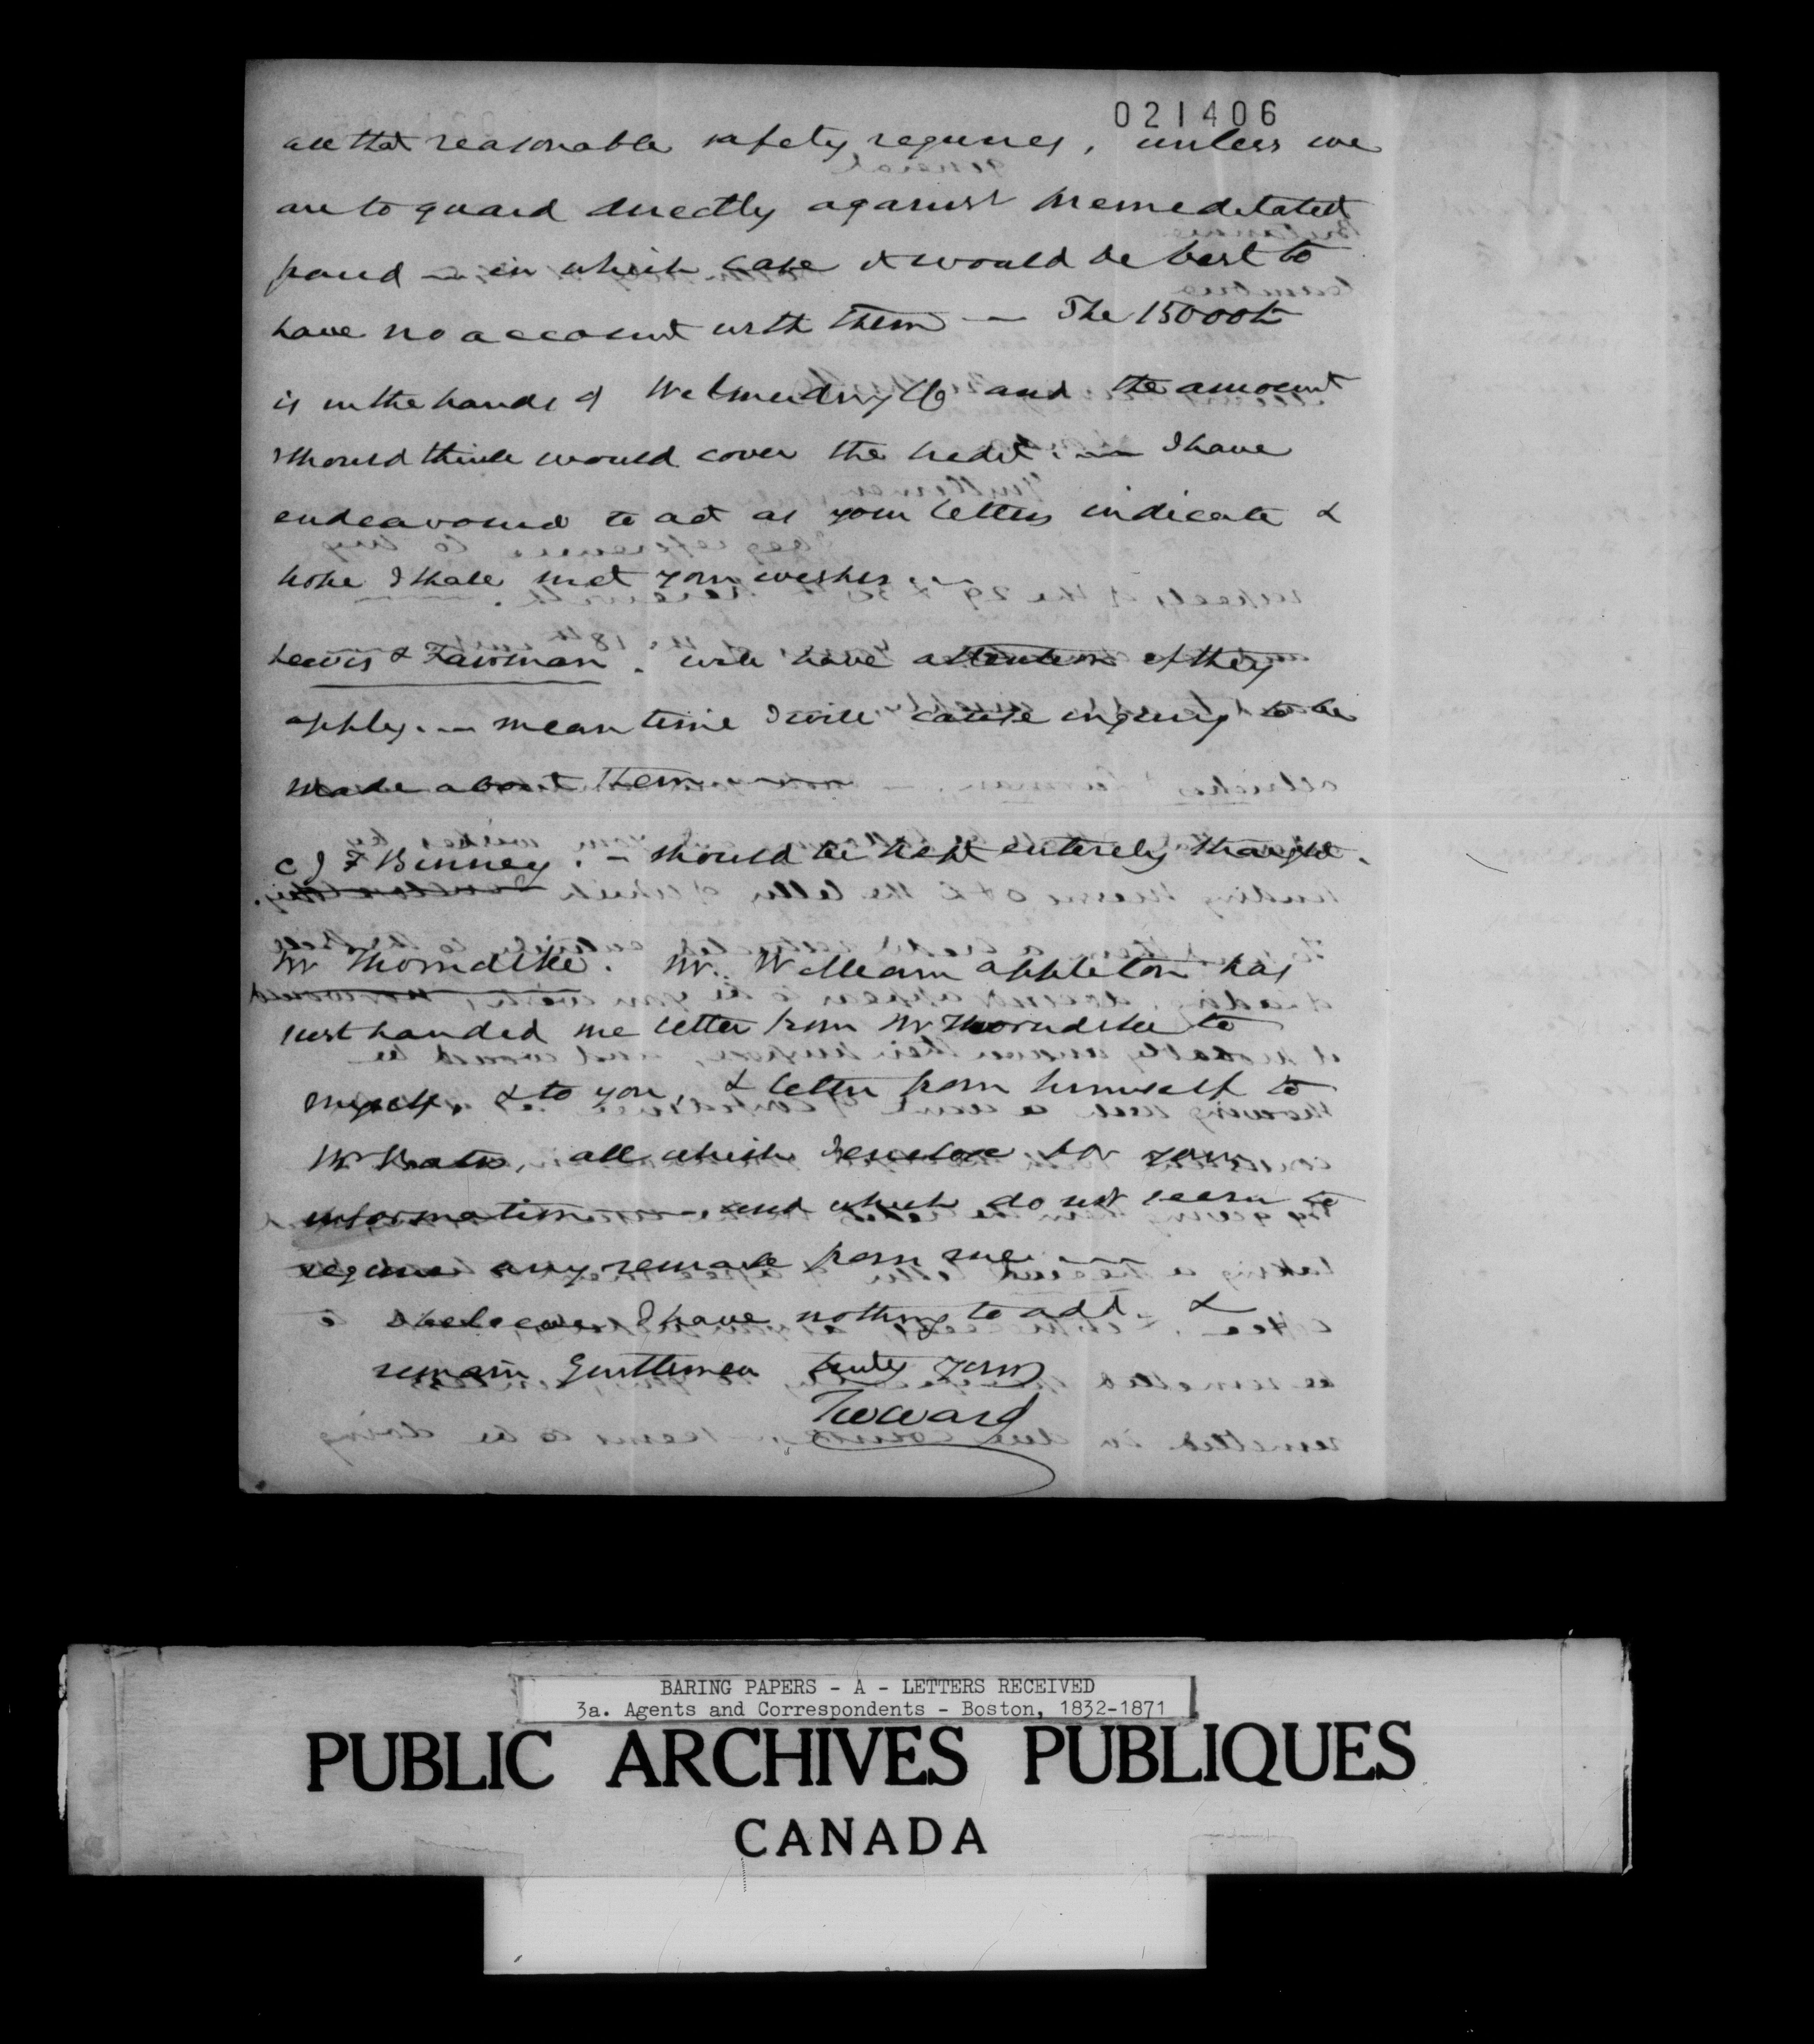 021406
all that reasonable safety requires, unless we
are to guard directly against premeditated
fraud — in which case it would be best to
have no account with them — The 15000
is in the hands of & Co and the amount
I should think would cover the credit. — I have
endeavoured to act as your letters indicate &
hope I shall met your wishes. —
Lewis & Fairman. will have attention if they
apply. — mean time I will cause inquiry to be
made about them —
C J F Binney. — should be kept entirely straight.
Mr Thorndike. Mr. William Appleton has
just handed me letter from Mr Thorndike to
myself, & to you, & letter from himself to
Mr Bates, all which I enclose for your
information — and which do not seem to
require any remark from me —
I have nothing to add. &
remain Gentlemen truly yours
TWWard
BARING PAPERS - A - LETTERS RECEIVED
3a. Agents and Correspondents - Boston, 1832-1871
PUBLIC ARCHIVES PUBLIQUES
CANADA